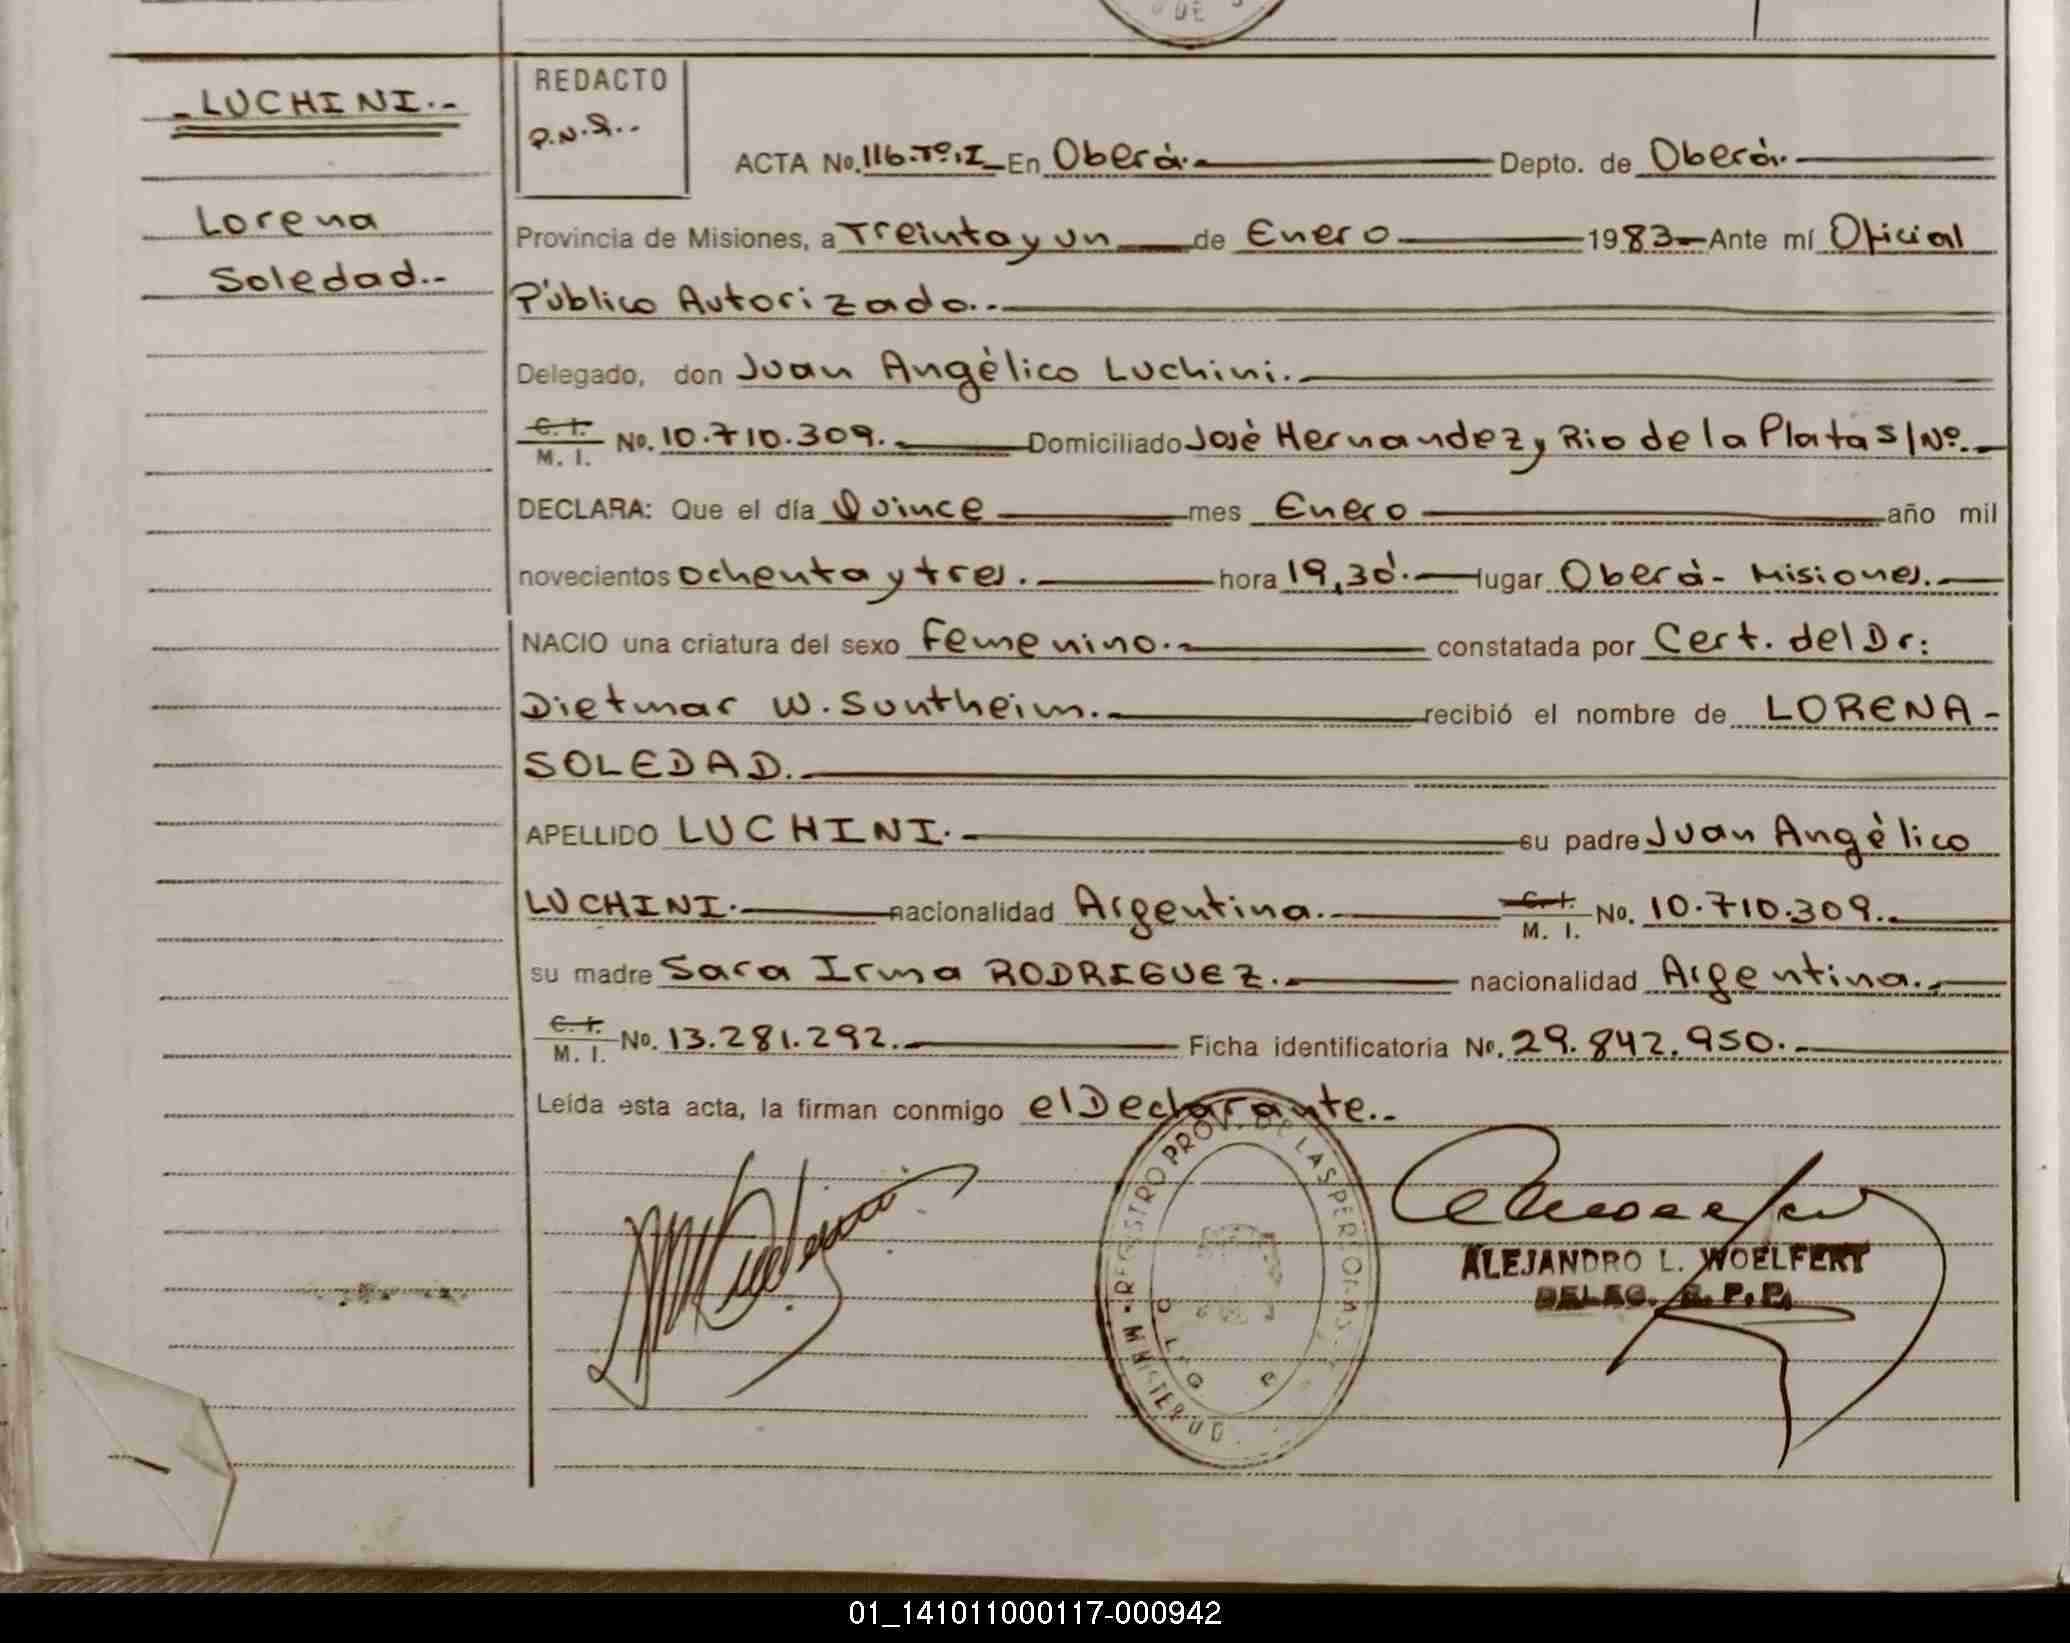 DE
-LUCHINI.-
Lorena
Soledad.-
REDACTO
ACTA No. 116.Tº.I_ En Oberá.- Depto. de Oberá.-
Provincia de Misiones, a Treinta y un de Enero 1983- Ante mí Oficial
Público Autorizado.-
Delegado, don Juan Angélico Luchini.-
C. I. M. I. No. 10.710.309.- Domiciliado José Hernandez y Rio de la Plata S/Nº.-
DECLARA: Que el día Quince mes Enero año mil
novecientos ochenta y tres.- hora 19,30.- lugar Oberá- Misiones.-
NACIO una criatura del sexo Femenino.- constatada por Cert. del Dr:
Dietmar W. Suntheim.- recibió el nombre de LORENA-
SOLEDAD.-
APELLIDO LUCHINI.- su padre Juan Angélico
LUCHINI.- nacionalidad Argentina.- C. I. M. I. No. 10.710.309.-
su madre Sara Irma RODRIGUEZ.- nacionalidad Argentina.-
C. I. M. I. No. 13.281.292.- Ficha identificatoria No. 29.842.950.-
Leída esta acta, la firman conmigo el Declarante.-
REGISTRO PROV. DE LAS PERSONAS
ALEJANDRO L. WOELFERT
DELEG. R. P. P.
01_141011000117-000942